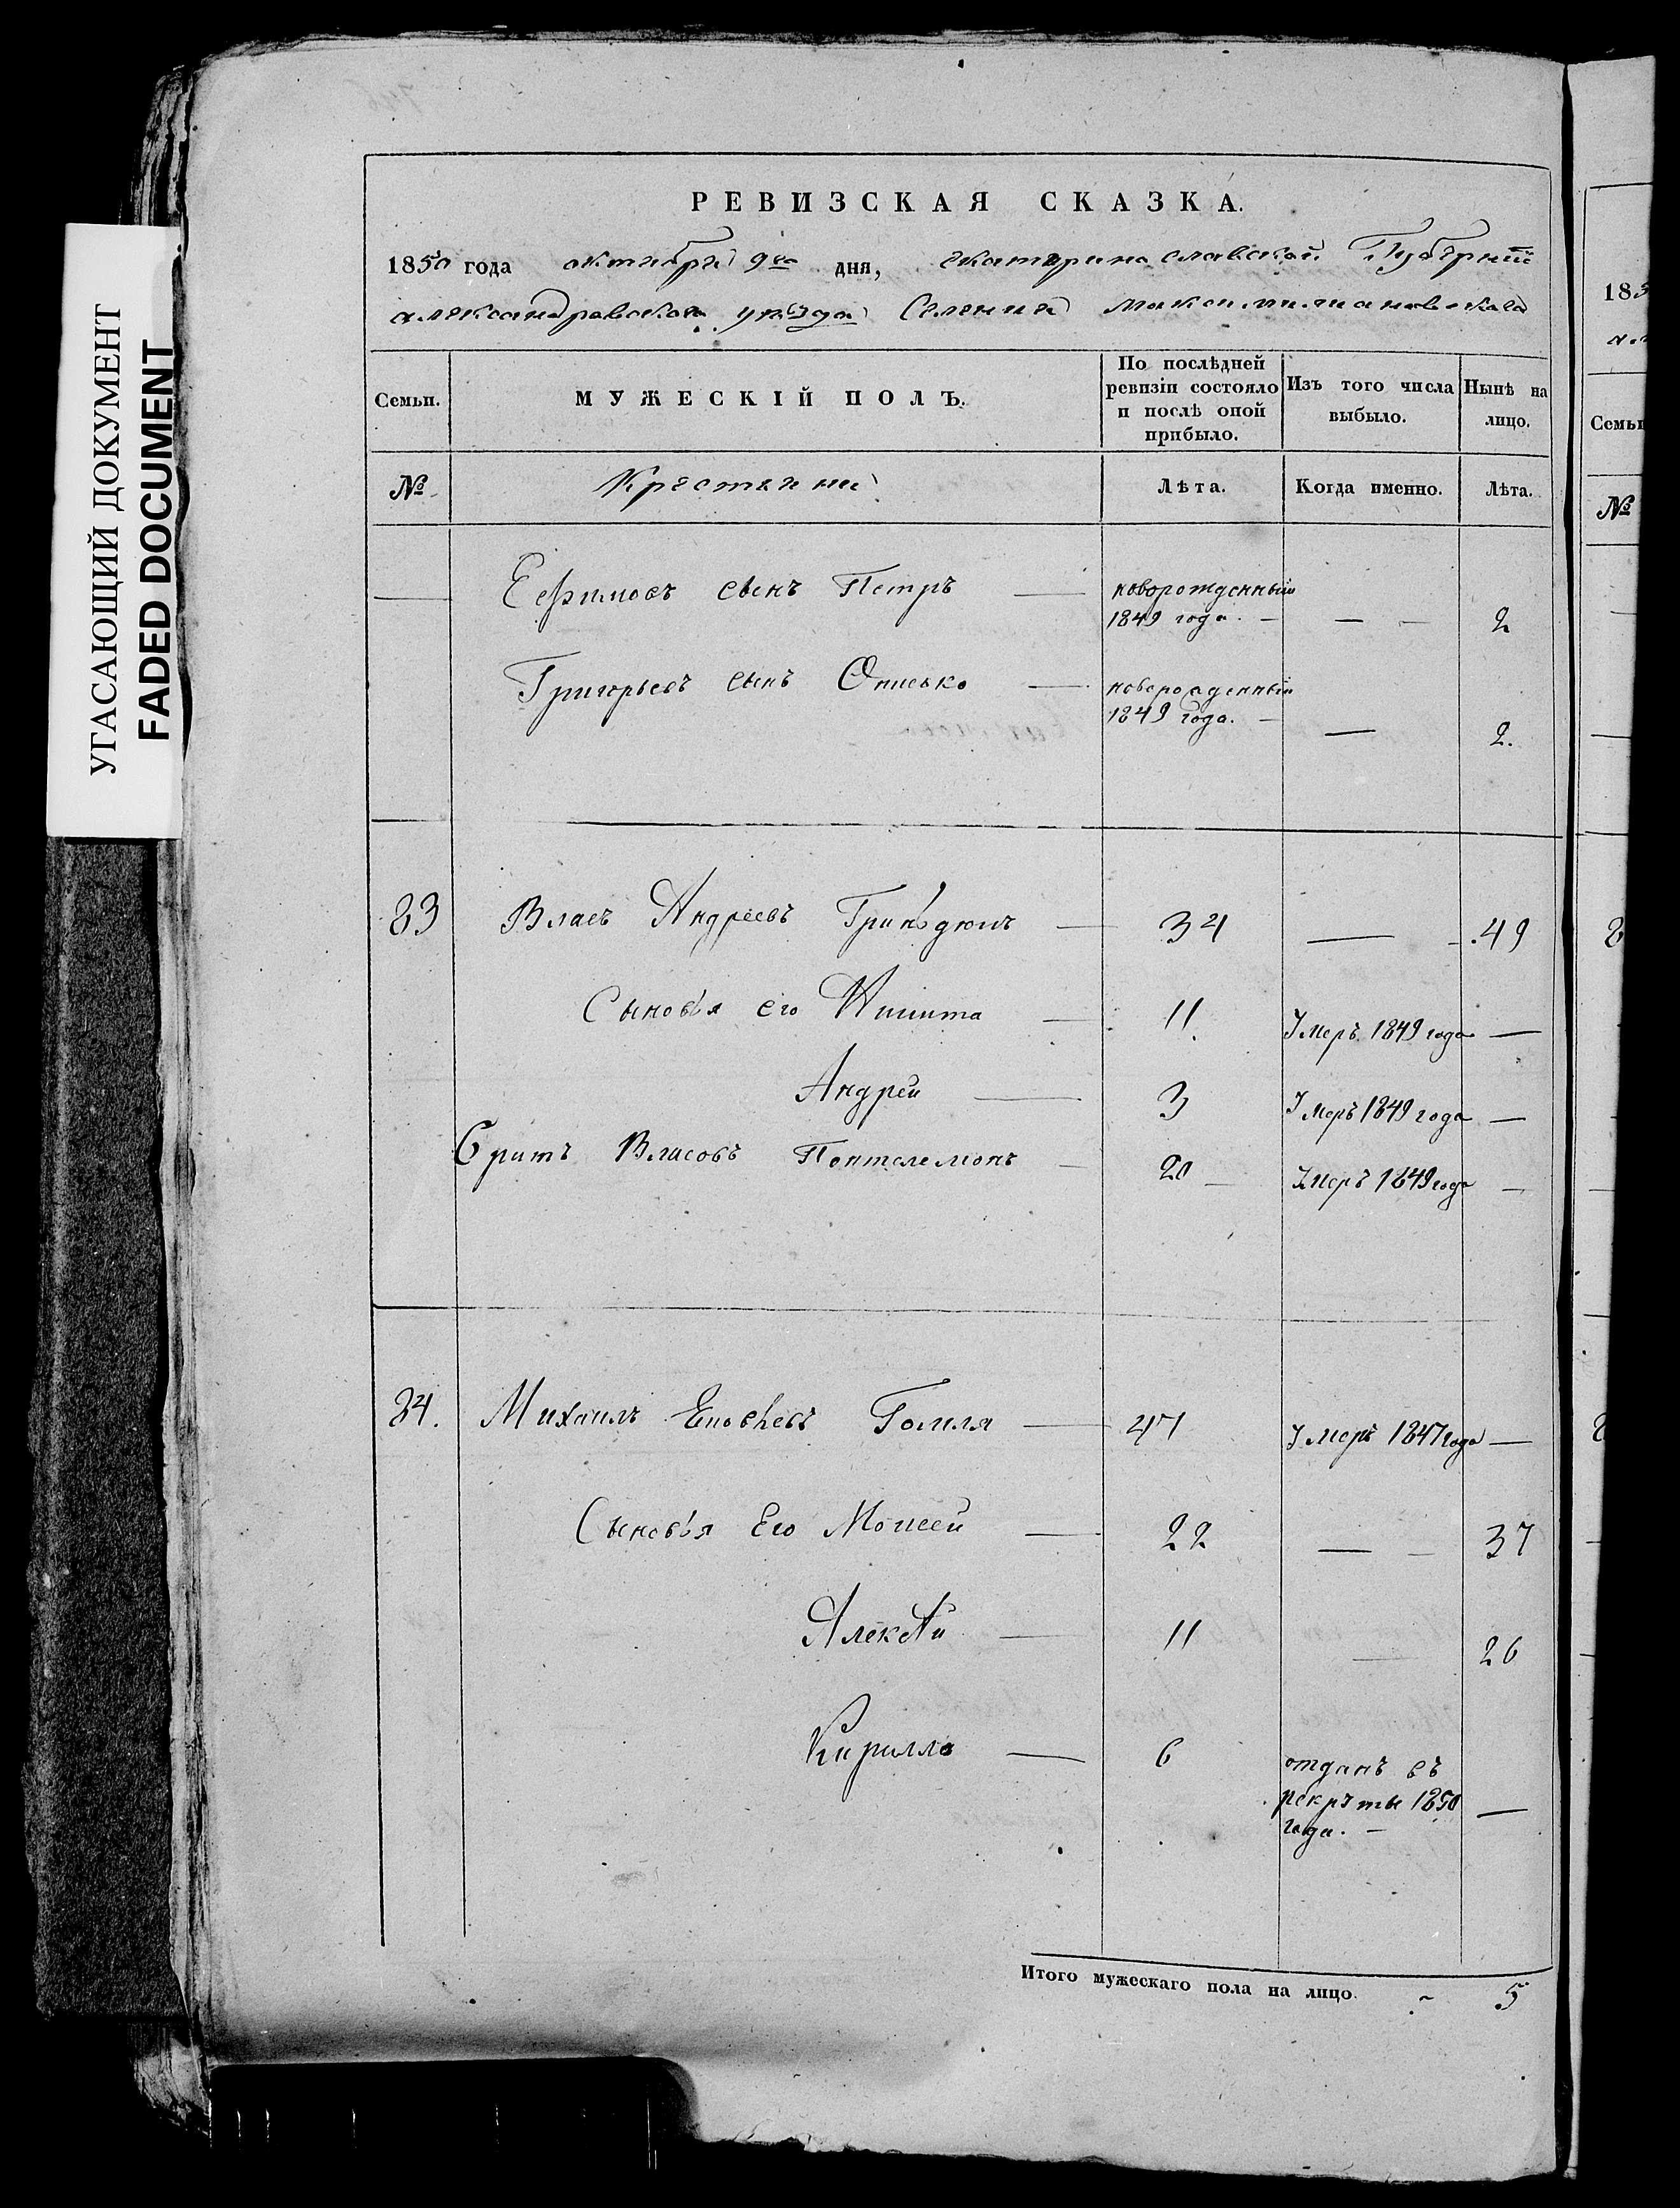 УГАСАЮЩИЙ ДОКУМЕНТ
FADED DOCUMENT
РЕВИЗСКАЯ СКАЗКА.
1850 года октября 9го дня, екатеринославской Губернии
александровскаго уѣзда Селения максимилиановскаго
Семьи. МУЖЕСКІЙ ПОЛЪ. По послѣдней ревизіи состояло и послѣ оной прибыло. Изъ того числа выбыло. Нынѣ на лицо.
№ Крестьяни Лѣта. Когда именно. Лѣта.
Ефимовъ сынъ Петръ — новорожденный 1849 года. — — — 2
Григорьевъ сынъ Онисько — новорожденный 1849 года. — — 2.
83 Власъ Андреевъ — 34 — 49
Сыновья его Никита — 11 Умеръ 1849 года —
Андрей — 3 Умеръ 1849 года —
Братъ Власовъ Пантелемонъ — 20 — Умеръ 1849 года —
84. Михаилъ Гомля — 47 Умеръ 1847 года —
Сыновья Его Моисей — 22 — — 37
Алексѣй — 11 — 26
Кирилло — 6 отданъ въ рекруты 1850 года. — —
Итого мужескаго пола на лицо. 5
183
Семьи
№